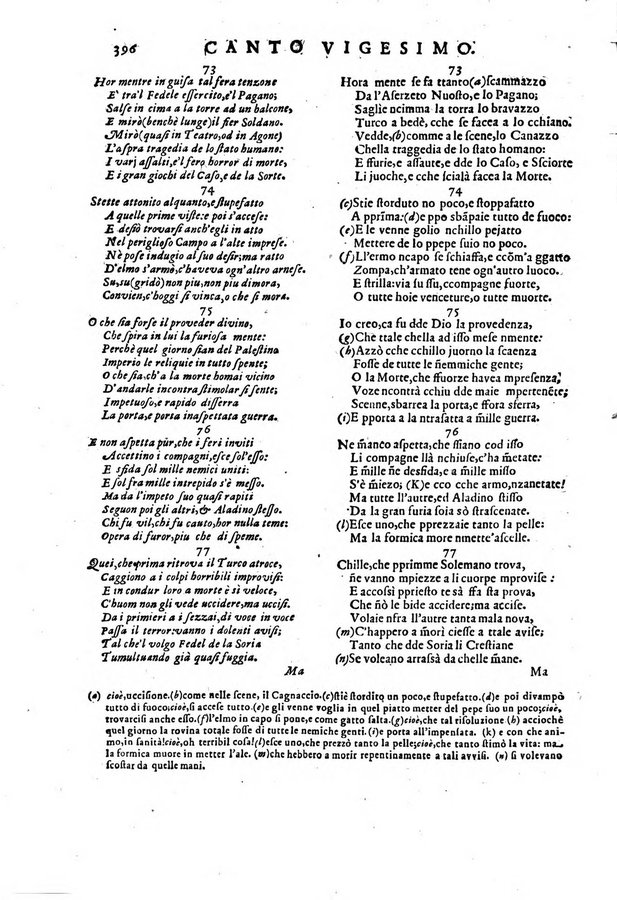 396 CANTO VIGESIMO.
73
Hor mentre in guisa tal fera tenzone
E' tra'l Fedele essercito, e'l Pagano;
Salse in cima a la torre ad un balcone,
E mirò (benchè lunge) il fier Soldano.
Mirò (quasi in Teatro, od in Agone)
L'aspra tragedia de lo stato humano:
I varj assalti, e'l fero horror di morte,
E i gran giochi del Caso, e de la Sorte.
74
Stette attonito alquanto, e stupefatto
A quelle prime viste: e poi s'accese:
E desiò trovarsi anch'egli in atto
Nel periglioso Campo a l'alte imprese.
Nè pose indugio al suo desir; ma ratto
D'elmo s'armò, c'haveva ogn'altro arnese.
Su, su (gridò) non piu, non piu dimora,
Convien, c'hoggi si vinca, o che si mora.
75
O che sia forse il proveder divino,
Che spira in lui la furiosa mente:
Perchè quel giorno sian del Palestino
Imperio le reliquie in tutto spente;
O che sia, ch'a la morte homai vicino
D'andarle incontra stimolar si sente;
Impetuoso, e rapido disserra
La porta, e porta inaspettata guerra.
76
E non aspetta pur, che i feri inviti
Accettino i compagni, esce sol'esso:
E sfida sol mille nemici uniti:
E sol fra mille intrepido s'è messo.
Ma da l'impeto suo quasi rapiti
Seguon poi gli altri, & Aladino stesso.
Chi fu vil, chi fu cauto, hor nulla teme:
Opera di furor, piu che di speme.
77
Quei, che prima ritrova il Turco atroce,
Caggiono a i colpi horribili improvisi:
E in condur loro a morte è sì veloce,
C'huom non gli vede uccidere, ma uccisi.
Da i primieri a i sezzai, di voce in voce
Passa il terror: vanno i dolenti avisi;
Tal che'l volgo Fedel de la Soria
Tumultuando già quasi fuggia.
Ma
73
Hora mente se fa ttanto (a) scammazzo
Da l'Aserzeto Nuosto, e lo Pagano;
Saglie ncimma la torra lo bravazzo
Turco a bedè, ch'è se facea a lo cchiano.
Vedde, (b) comme a le scene, lo Canazzo
Chella traggedia de lo stato homano:
E ffurie, e assaute, e dde lo Caso, e Sciorte
Li juoche, e cche scialà facea la Morte.
74
(c) Stie storduto no poco, e stoppafatto
A pprimma: (d) e ppo sbãpaie tutto de fuoco:
(e) E le venne golio nchillo pejatto
Mettere de lo ppepe suio no poco.
(f) Ll'ermo ncapo se schiaffa, e ccõm'a ggatto
Zompa, ch'armato tene ogn'autro luoco.
E strilla: via su ffu, ccompagne fuorte,
O tutte hoie venceture, o tutte muorte.
75
Io creo, ca fu dde Dio la provedenza,
(g) Che ttale chella ad isso mese nmente:
(h) Azzò cche cchillo juorno la scaenza
Fosse de tutte le ñemmiche gente;
O la Morte, che ffuorze havea mpresenza,
Voze ncontra cchiu dde maie mpertenente;
Scenne, sbarrea la porta, e ffora sferra,
(i) E pporta a la ntrasatta a mmille guerra.
76
Ne mãnco aspetta, che ssiano cod isso
Li compagne llà nchiuse, c'ha mmetate:
E mmille ñe desfida, e a mille misso
S'è mmiezo; (K) e cco cche armo, nzanetate!
Ma tutte ll'autre, ed Aladino stisso
Da la gran furia soia sò strascenate.
(l) Esce uno, che pprezzaie tanto la pelle:
Ma la formica more mmette'ascelle.
77
Chille, che pprimme Solemano trova,
ñe vanno mpiezze a li cuorpe mprovise:
E accossì ppriesto se ffa sta prova,
Che ñò le bide accidere; ma accise.
Volaie nfra ll'autre tanta mala nova,
(m) C'happero a mmorì ciesse a ttale avise;
Tanto che dde Soria li Crestiane
(n) Se voleano arrassà da chelle mmane.
Ma
(a) cioè, uccisione. (b) come nelle scene, il Cagnaccio. (c) stiè stordito un poco, e stupefatto. (d) e poi divampò
tutto di fuoco, cioè, si accese tutto. (e) e gli venne voglia in quel piatto metter del pepe suo un poco; cioè,
trovarcisi anche esso. (f) l'elmo in capo si pone, e come gatto salta. (g) cioè, che tal risoluzione (h) acciochè
quel giorno la rovina totale fosse di tutte le nemiche genti. (i) e porta all'impensata. (k) e con che ani-
mo, in sanità! cioè, oh terribil cosa! (l) esce uno, che prezzò tanto la pelle; cioè, che tanto stimò la vita: ma
la formica muore in metter l'ale. (m) che hebbero a morir repentinamente a tali avvisi. (n) si volevano
scostar da quelle mani.